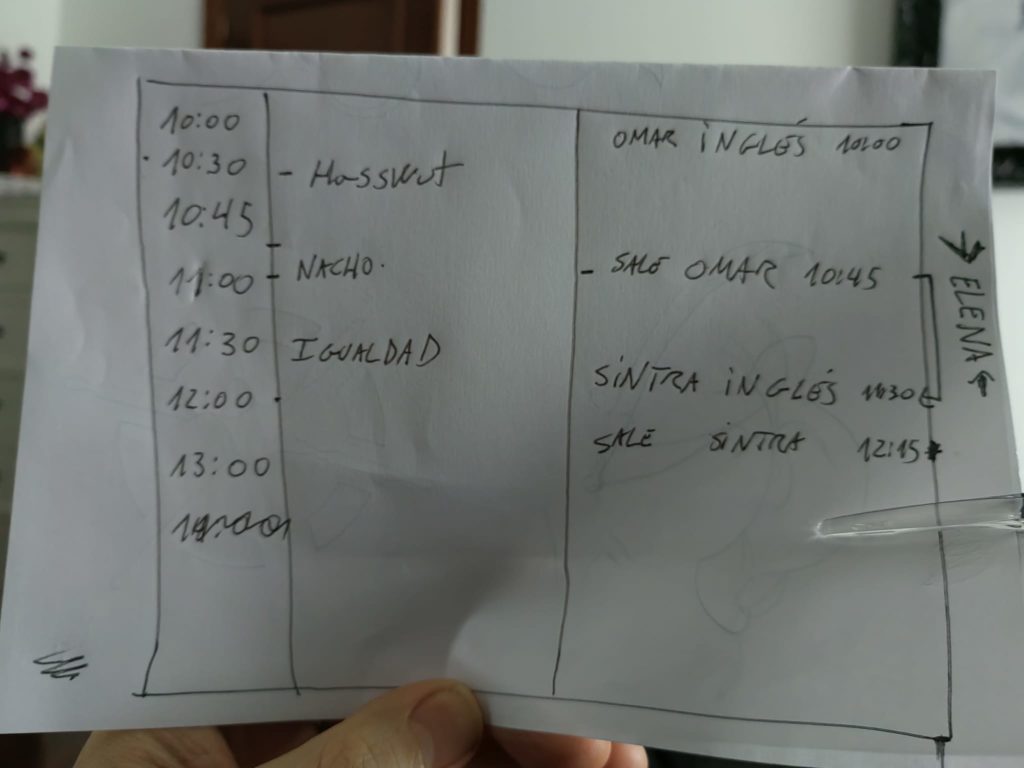 10:00
10:30 - Hasswut
10:45
11:00 - NACHO.
11:30 IGUALDAD
12:00
13:00
14:00
OMAR INGLÉS 10:00
- SALE OMAR 10:45
SINTRA INGLÉS 11:30
SALE SINTRA 12:15
ELENA